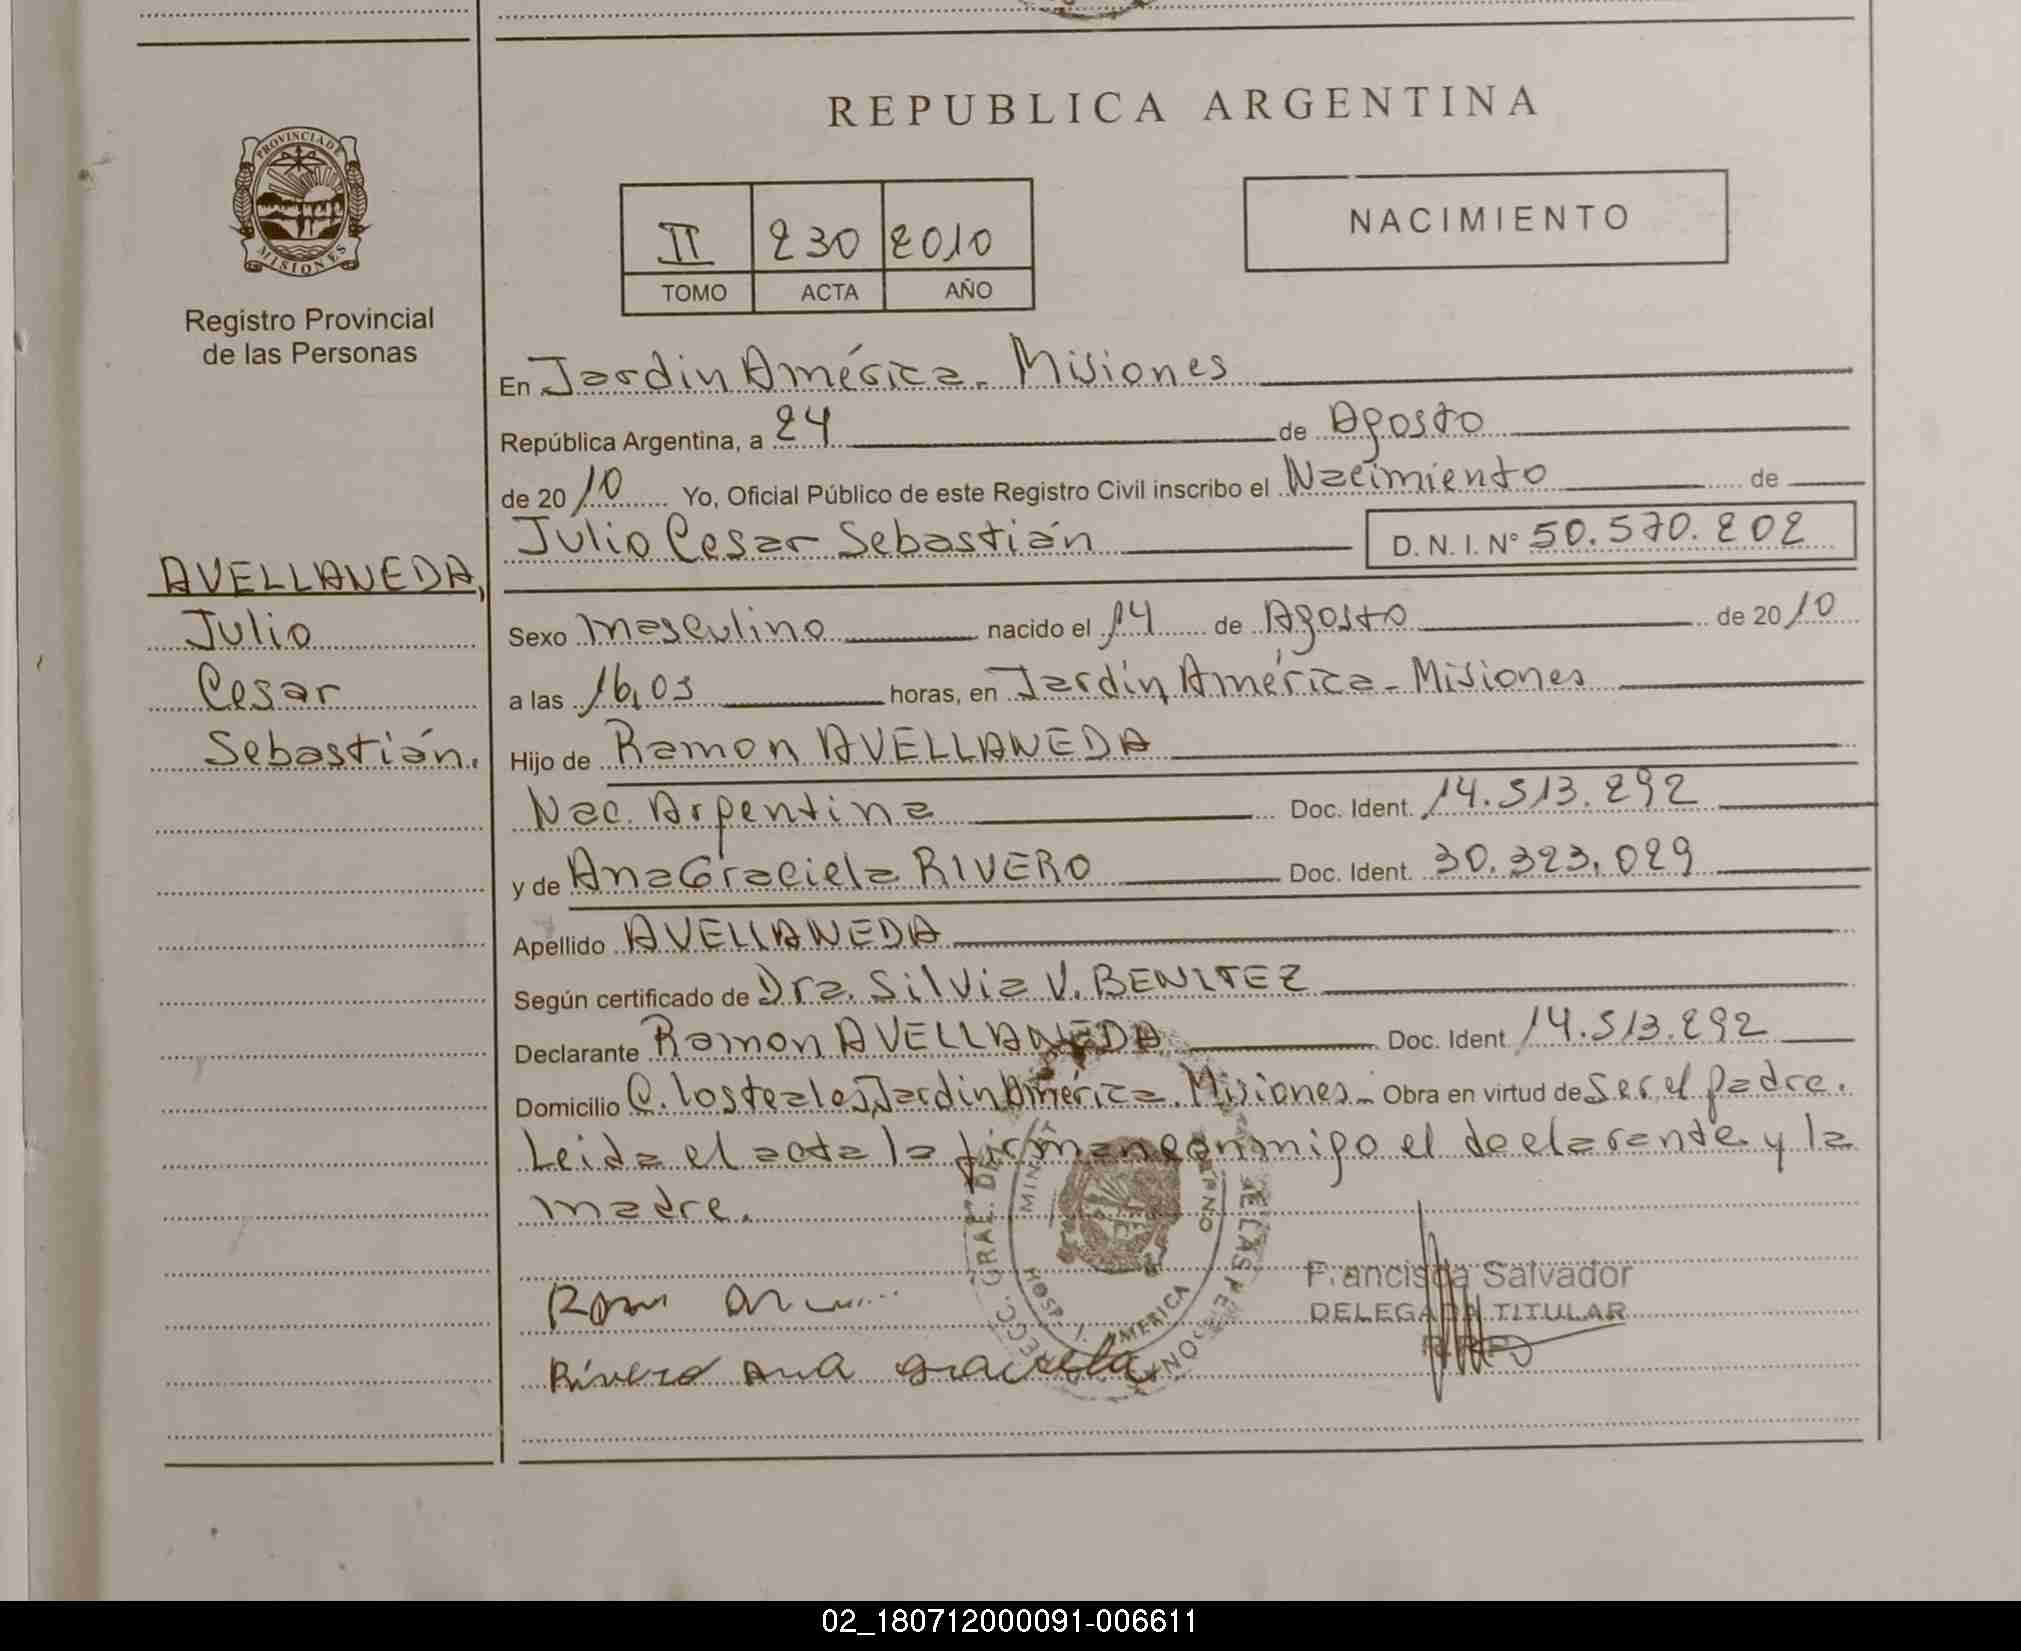 REPUBLICA ARGENTINA
PROVINCIA DE
MISIONES
Registro Provincial
de las Personas
II 230 2010
TOMO ACTA AÑO
NACIMIENTO
AVELLANEDA,
Julio
Cesar
Sebastián.
En Jardin América. Misiones
República Argentina, a 24 de Agosto
de 2010 Yo, Oficial Público de este Registro Civil inscribo el Nacimiento de
Julio Cesar Sebastián D.N.I.Nº 50.570.202
Sexo Masculino nacido el 14 de Agosto de 2010
a las 16,05 horas, en Jardín América - Misiones
Hijo de Ramon AVELLANEDA
Nac. Argentina Doc. Ident. 14.513.292
y de Ana Graciela RIVERO Doc. Ident. 30.323.029
Apellido AVELLANEDA
Según certificado de Dra. Silvia V. BENITEZ
Declarante Ramon AVELLANEDA Doc. Ident 14.513.292
Domicilio Jardin América. Misiones. Obra en virtud de ser el padre.
Leida el acta la firman conmigo el declarante y la
madre.
Francisca Salvador
DELEGADA TITULAR
Rivero Ana Graciela
HOSP. J. AMERICA
02_180712000091-006611